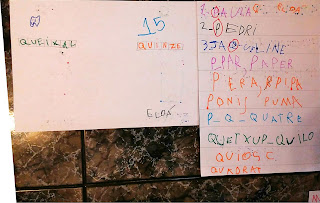 QUEIXAL
15
QUINZE
ELOÁ
1-PAULA
2-PEDRI
3-JAQUELINE
PPAR PAPER
PEPA, PIPA
PONIS PUMA
P_Q_QUATRE
QUETXUP_QUILO
QUIOSC
QUADRAT